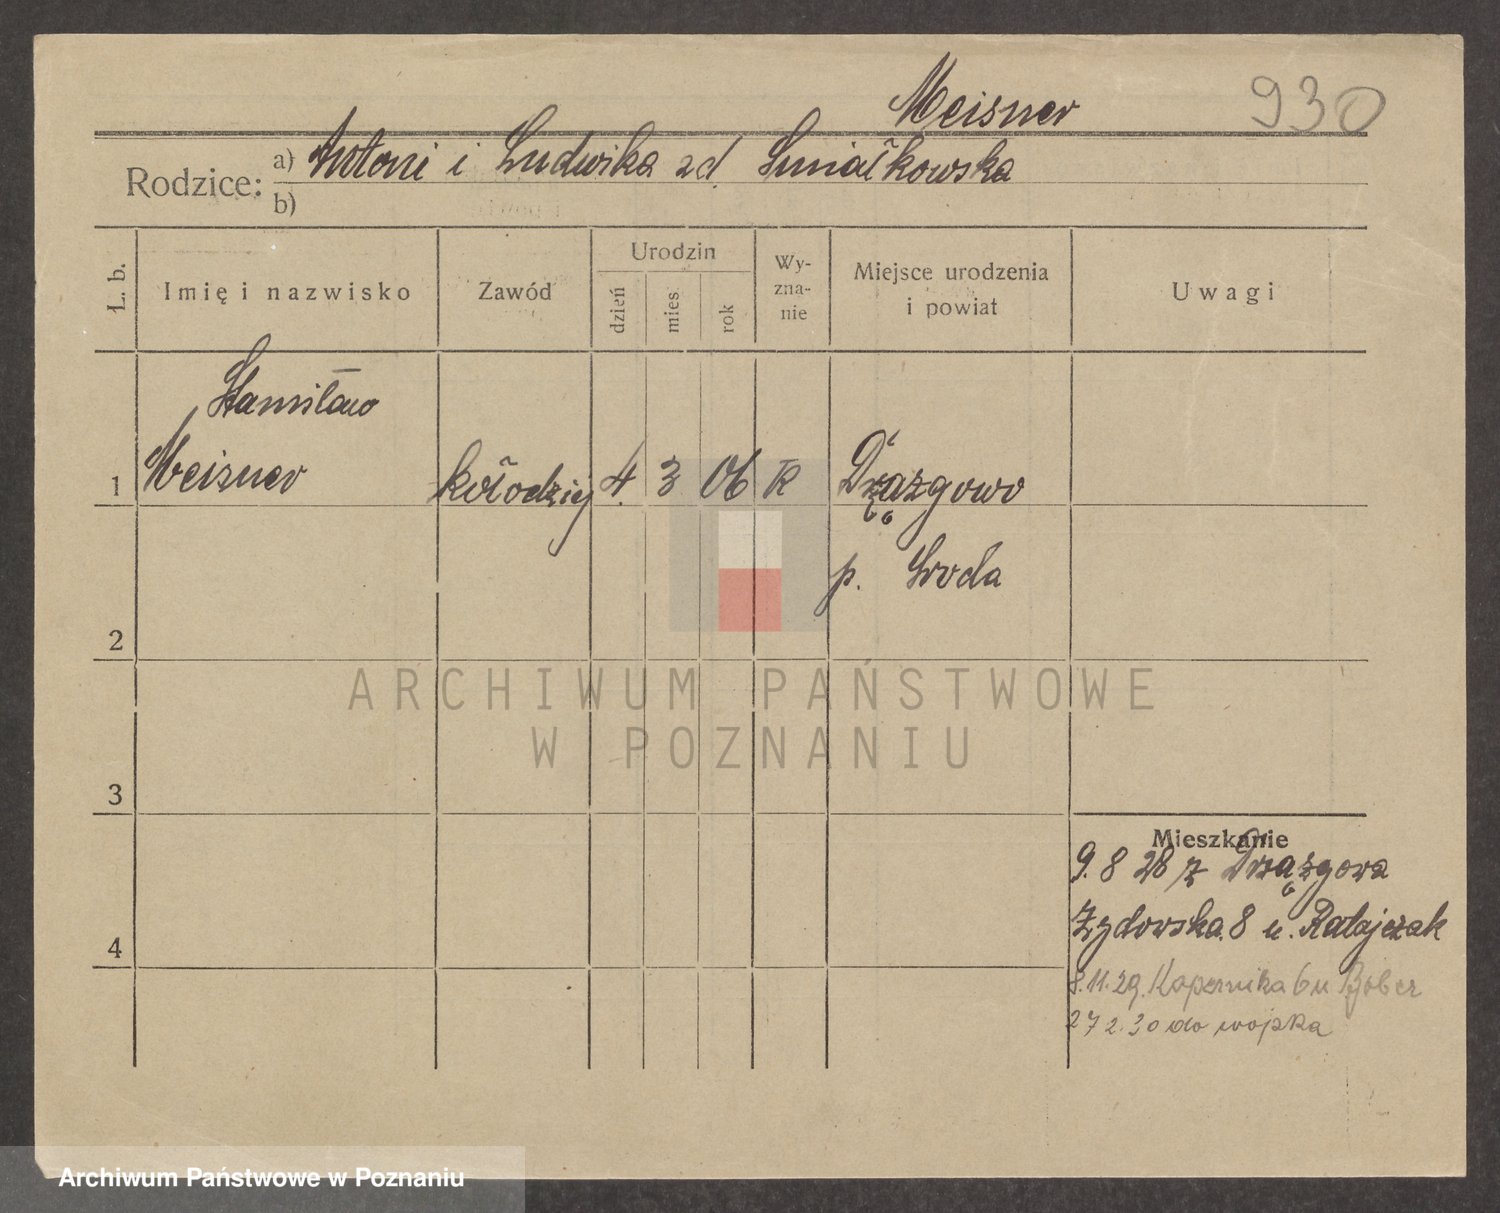 Meisner 930
Rodzice: a) Antoni i Ludwika zd. Smiałkowska
b)
L. b. Imię i nazwisko Zawód Urodzin dzień mies rok Wy-zna-nie Miejsce urodzenia i powiat Uwagi
Stanisław
1 Meisner kołodziej 4. 3 06 R Drązgowo
p. Sroda
2
ARCHIWUM PAŃSTWOWE
W POZNANIU
3
Mieszkanie
9.8 28 z Drązgowa
4 Zydowska 8 u. Ratajczak
8.11.29. Kopernika 6 u
27 2.30 do wojska
Archiwum Państwowe w Poznaniu